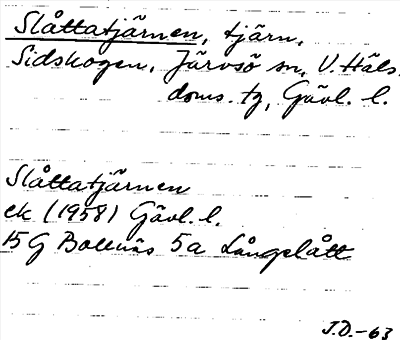 Slåttatjärnen, tjärn,
Sidskogen, Järvsö sn, V. Häls.
doms. tg, Gävl. l.
Slåttatjärnen
ek (1958) Gävl. l.
15 G Bollnäs 5a Långslått
J.D.-63